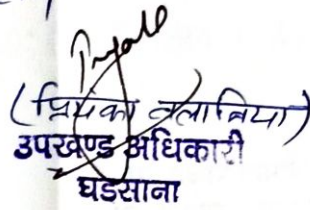 (प्रियंका तलानिया)
उपखण्ड अधिकारी
घडसाना